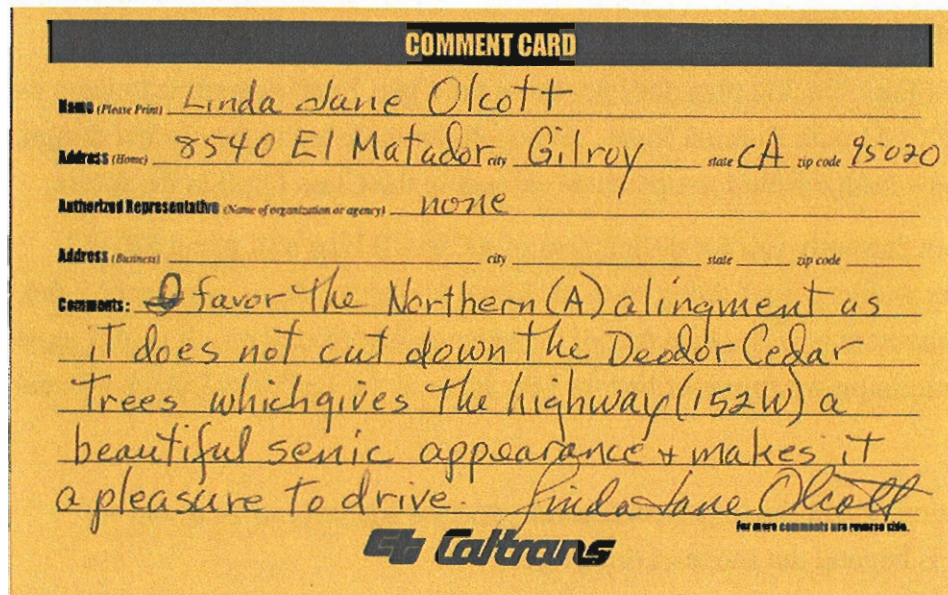 COMMENT CARD
Name (Please Print) Linda Jane Olcott
Address (Home) 8540 El Matador city Gilroy state CA zip code 95020
Authorized Representative (Name of organization or agency) none
Address (Business) city state zip code
Comments: I favor the Northern (A) alingment as
it does not cut down the Deodor Cedar
Trees which gives the highway (152W) a
beautiful senic appearance + makes it
a pleasure to drive. Linda Jane Olcott
for more comments use reverse side.
Caltrans